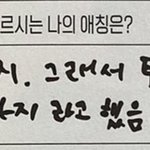 르시는 나의 애칭은?
지. 그래서
라고 했음